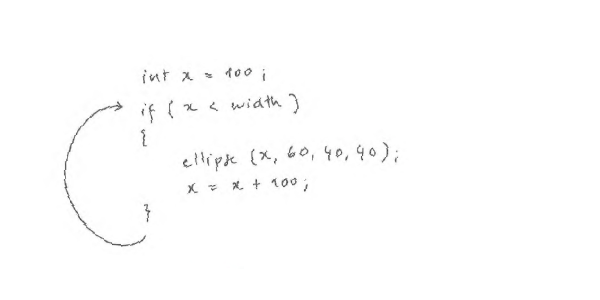 int x = 100;
if ( x < width )
{
ellipse (x, 60, 40, 40);
x = x + 100;
}